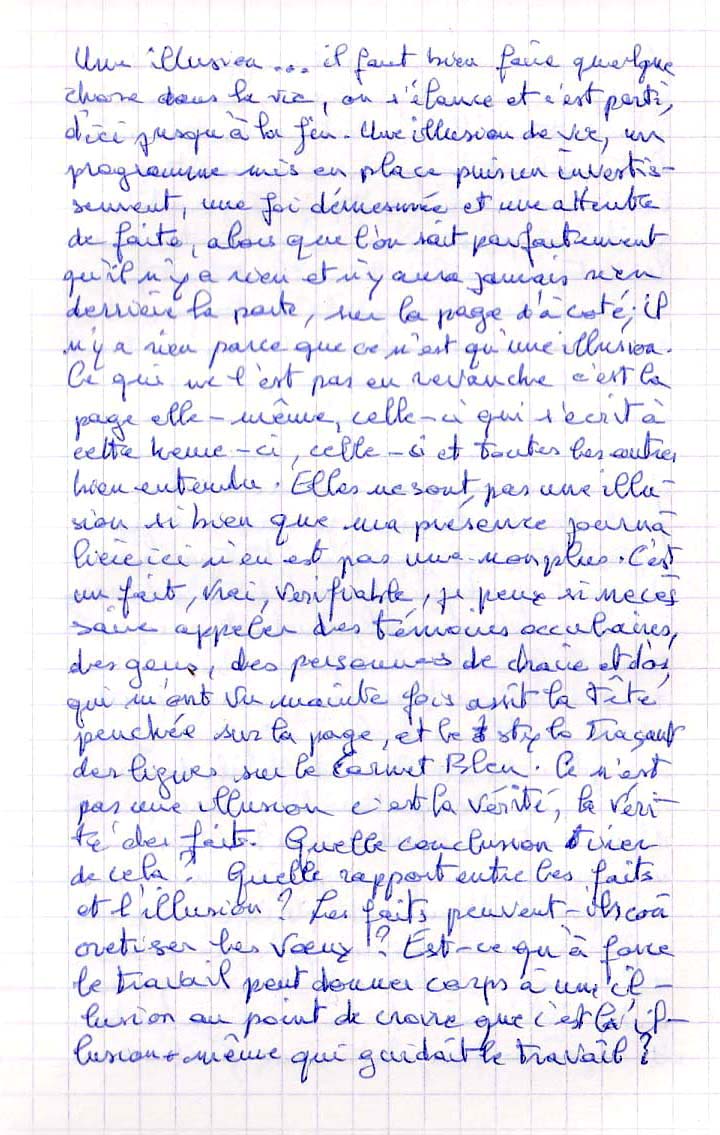 Une illusion... il faut bien faire quelque
chose dans la vie, on s'élance et c'est parti,
d'ici jusqu'à la fin. Une illusion de vie, un
programme mis en place puis un investis-
sement, une foi démesurée et une attente
de faits, alors que l'on sait parfaitement
qu'il n'y a rien et n'y aura jamais rien
derrière la porte, sur la page d'à coté; il
n'y a rien parce que ce n'est qu'une illusion.
Ce qui ne l'est pas en revanche c'est la
page elle-même, celle-ci qui s'écrit à
cette heure-ci, celle-si et toutes les autres
bien entendu. Elles ne sont pas une illu-
sion si bien que ma présence journa
lière ici n'en est pas une non plus. C'est
un fait, vrai, vérifiable, je peux si neces
saire appeler des témoins occulaires,
des gens, des personnes de chair et d'os,
qui m'ont vu mainte fois assit la tête
penchée sur la page, et le stylo traçant
des lignes sur le Carnet Bleu. Ce n'est
pas une illusion c'est la vérité, la véri-
té des faits. Quelle conclusion tirer
de cela? Quelle rapport entre les faits
et l'illusion? Les faits peuvent-ils con
cretiser les vœux? Est-ce qu'à force
le travail peut donner corps à une il-
lusion au point de croire que c'est l'il-
lusion-même qui guidait le travail?